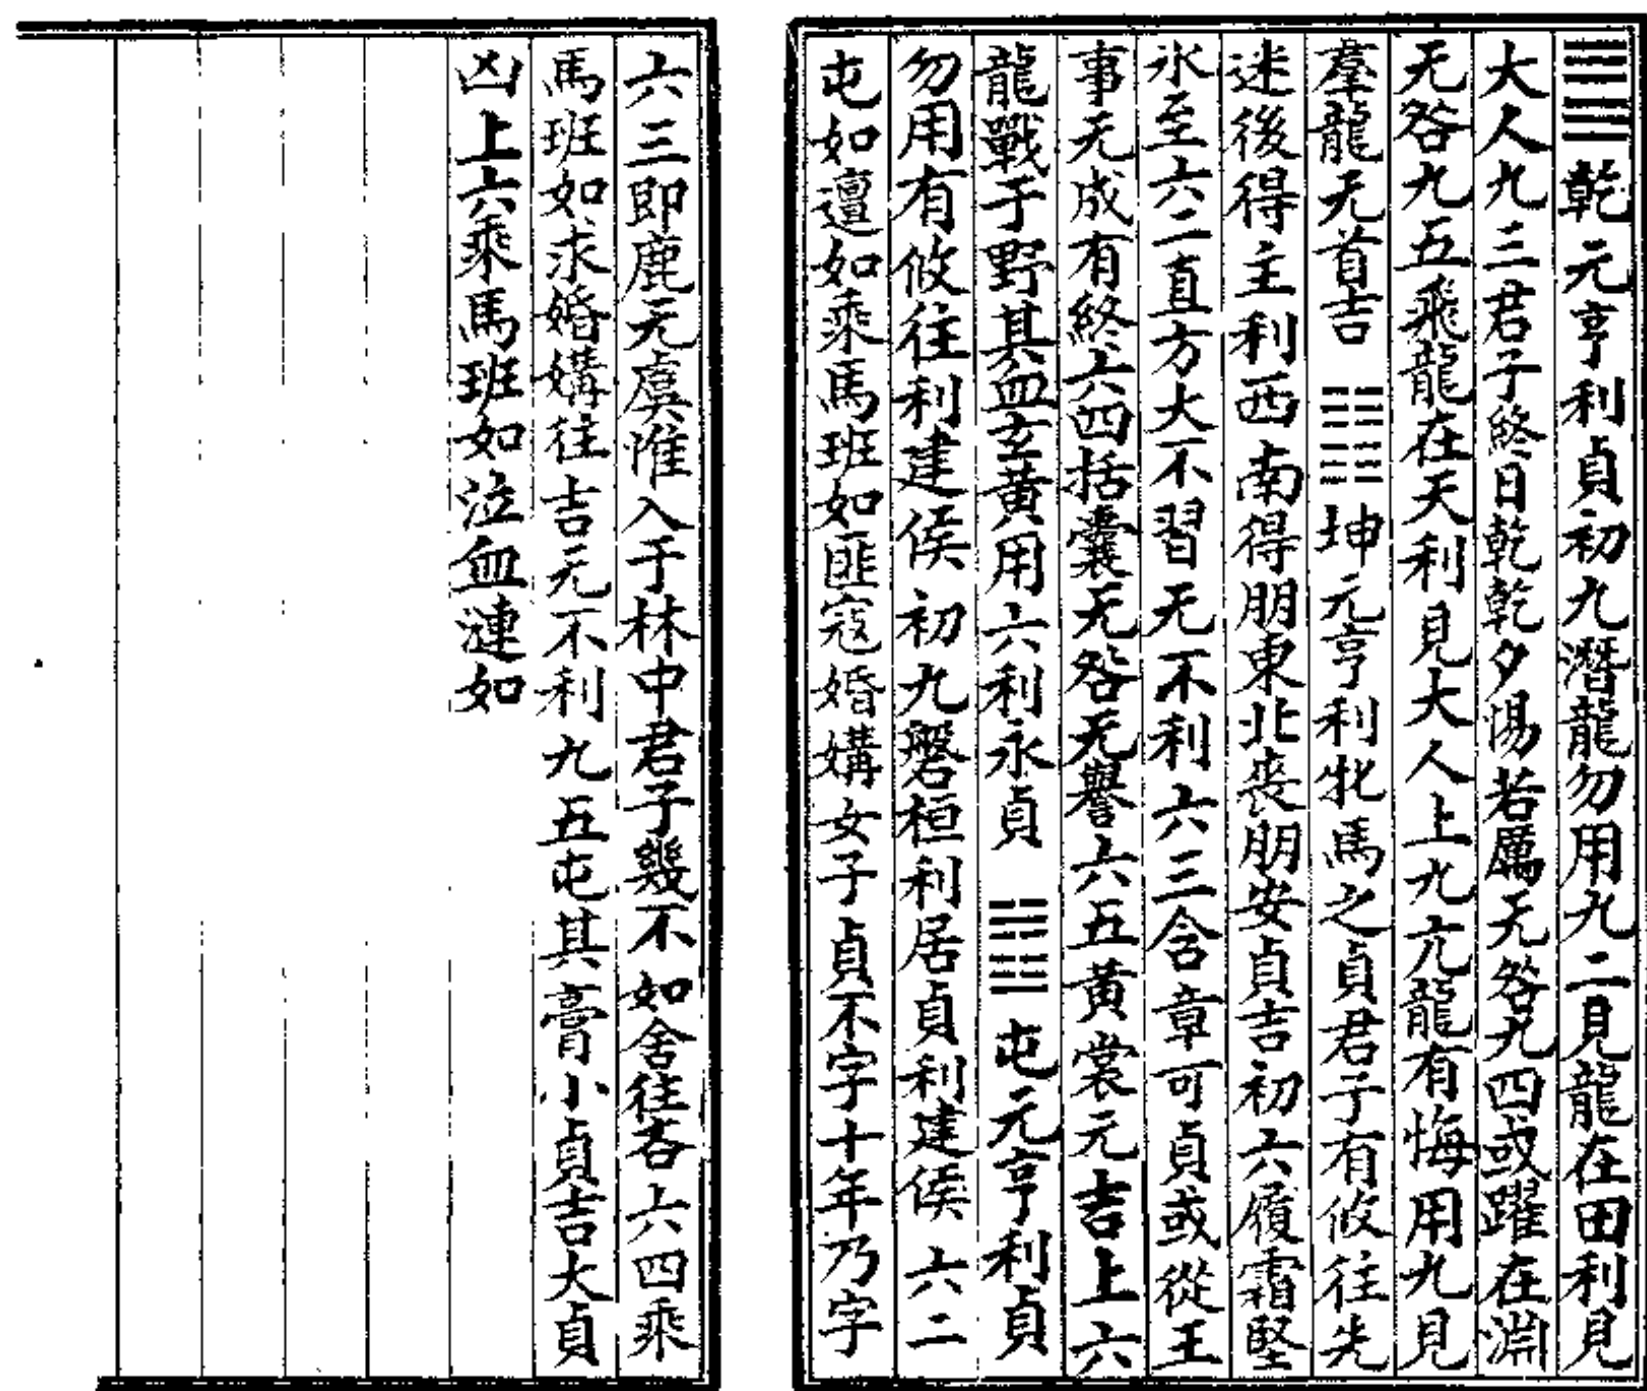 ䷀乾元亨利貞初九潛龍勿用九二見龍在田利見
大人九三君子終日乾乾夕惕若厲无咎九四或躍在淵
无咎九五飛龍在天利見大人上九亢龍有悔用九見
羣龍无首吉䷁坤元亨利牝馬之貞君子有攸往先
迷後得主利西南得朋東北丧朋安貞吉初六履霜堅
氷至六二直方大不習无不利六三含章可貞或從王
事无成有終六四括囊无咎无譽六五黃裳元吉上六
龍戰于野其血玄黃用六利永貞䷂屯元亨利貞
勿用有攸往利建侯初九磐桓利居貞利建侯六二
屯如邅如乘馬班如匪寇婚媾女子貞不字十年乃字
六三即鹿无虞惟入于林中君子幾不如舍往吝六四乘
馬班如求婚媾往吉无不利九五屯其膏小貞吉大貞
凶上六乘馬班如泣血漣如